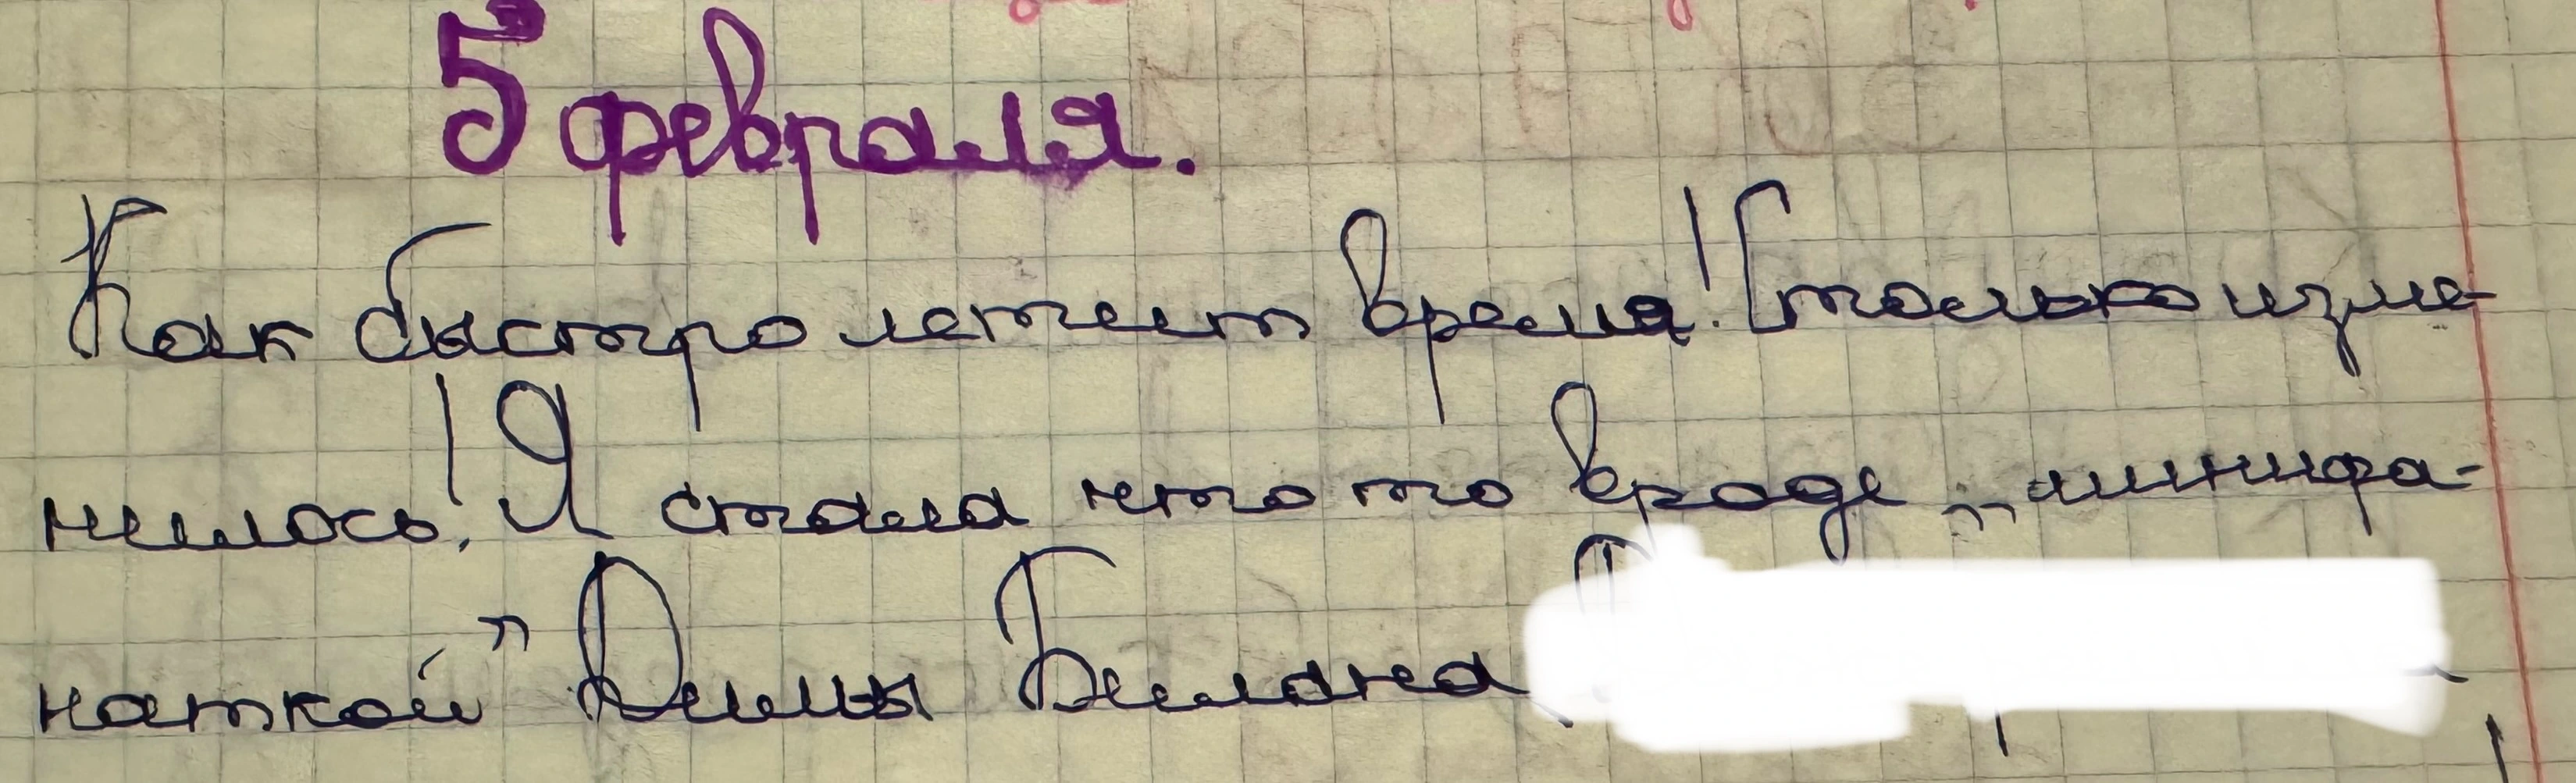 5 февраля.
Как быстро летит время! Столько изме-
нилось! Я стала что то вроде „минифа-
наткой" Димы Билана